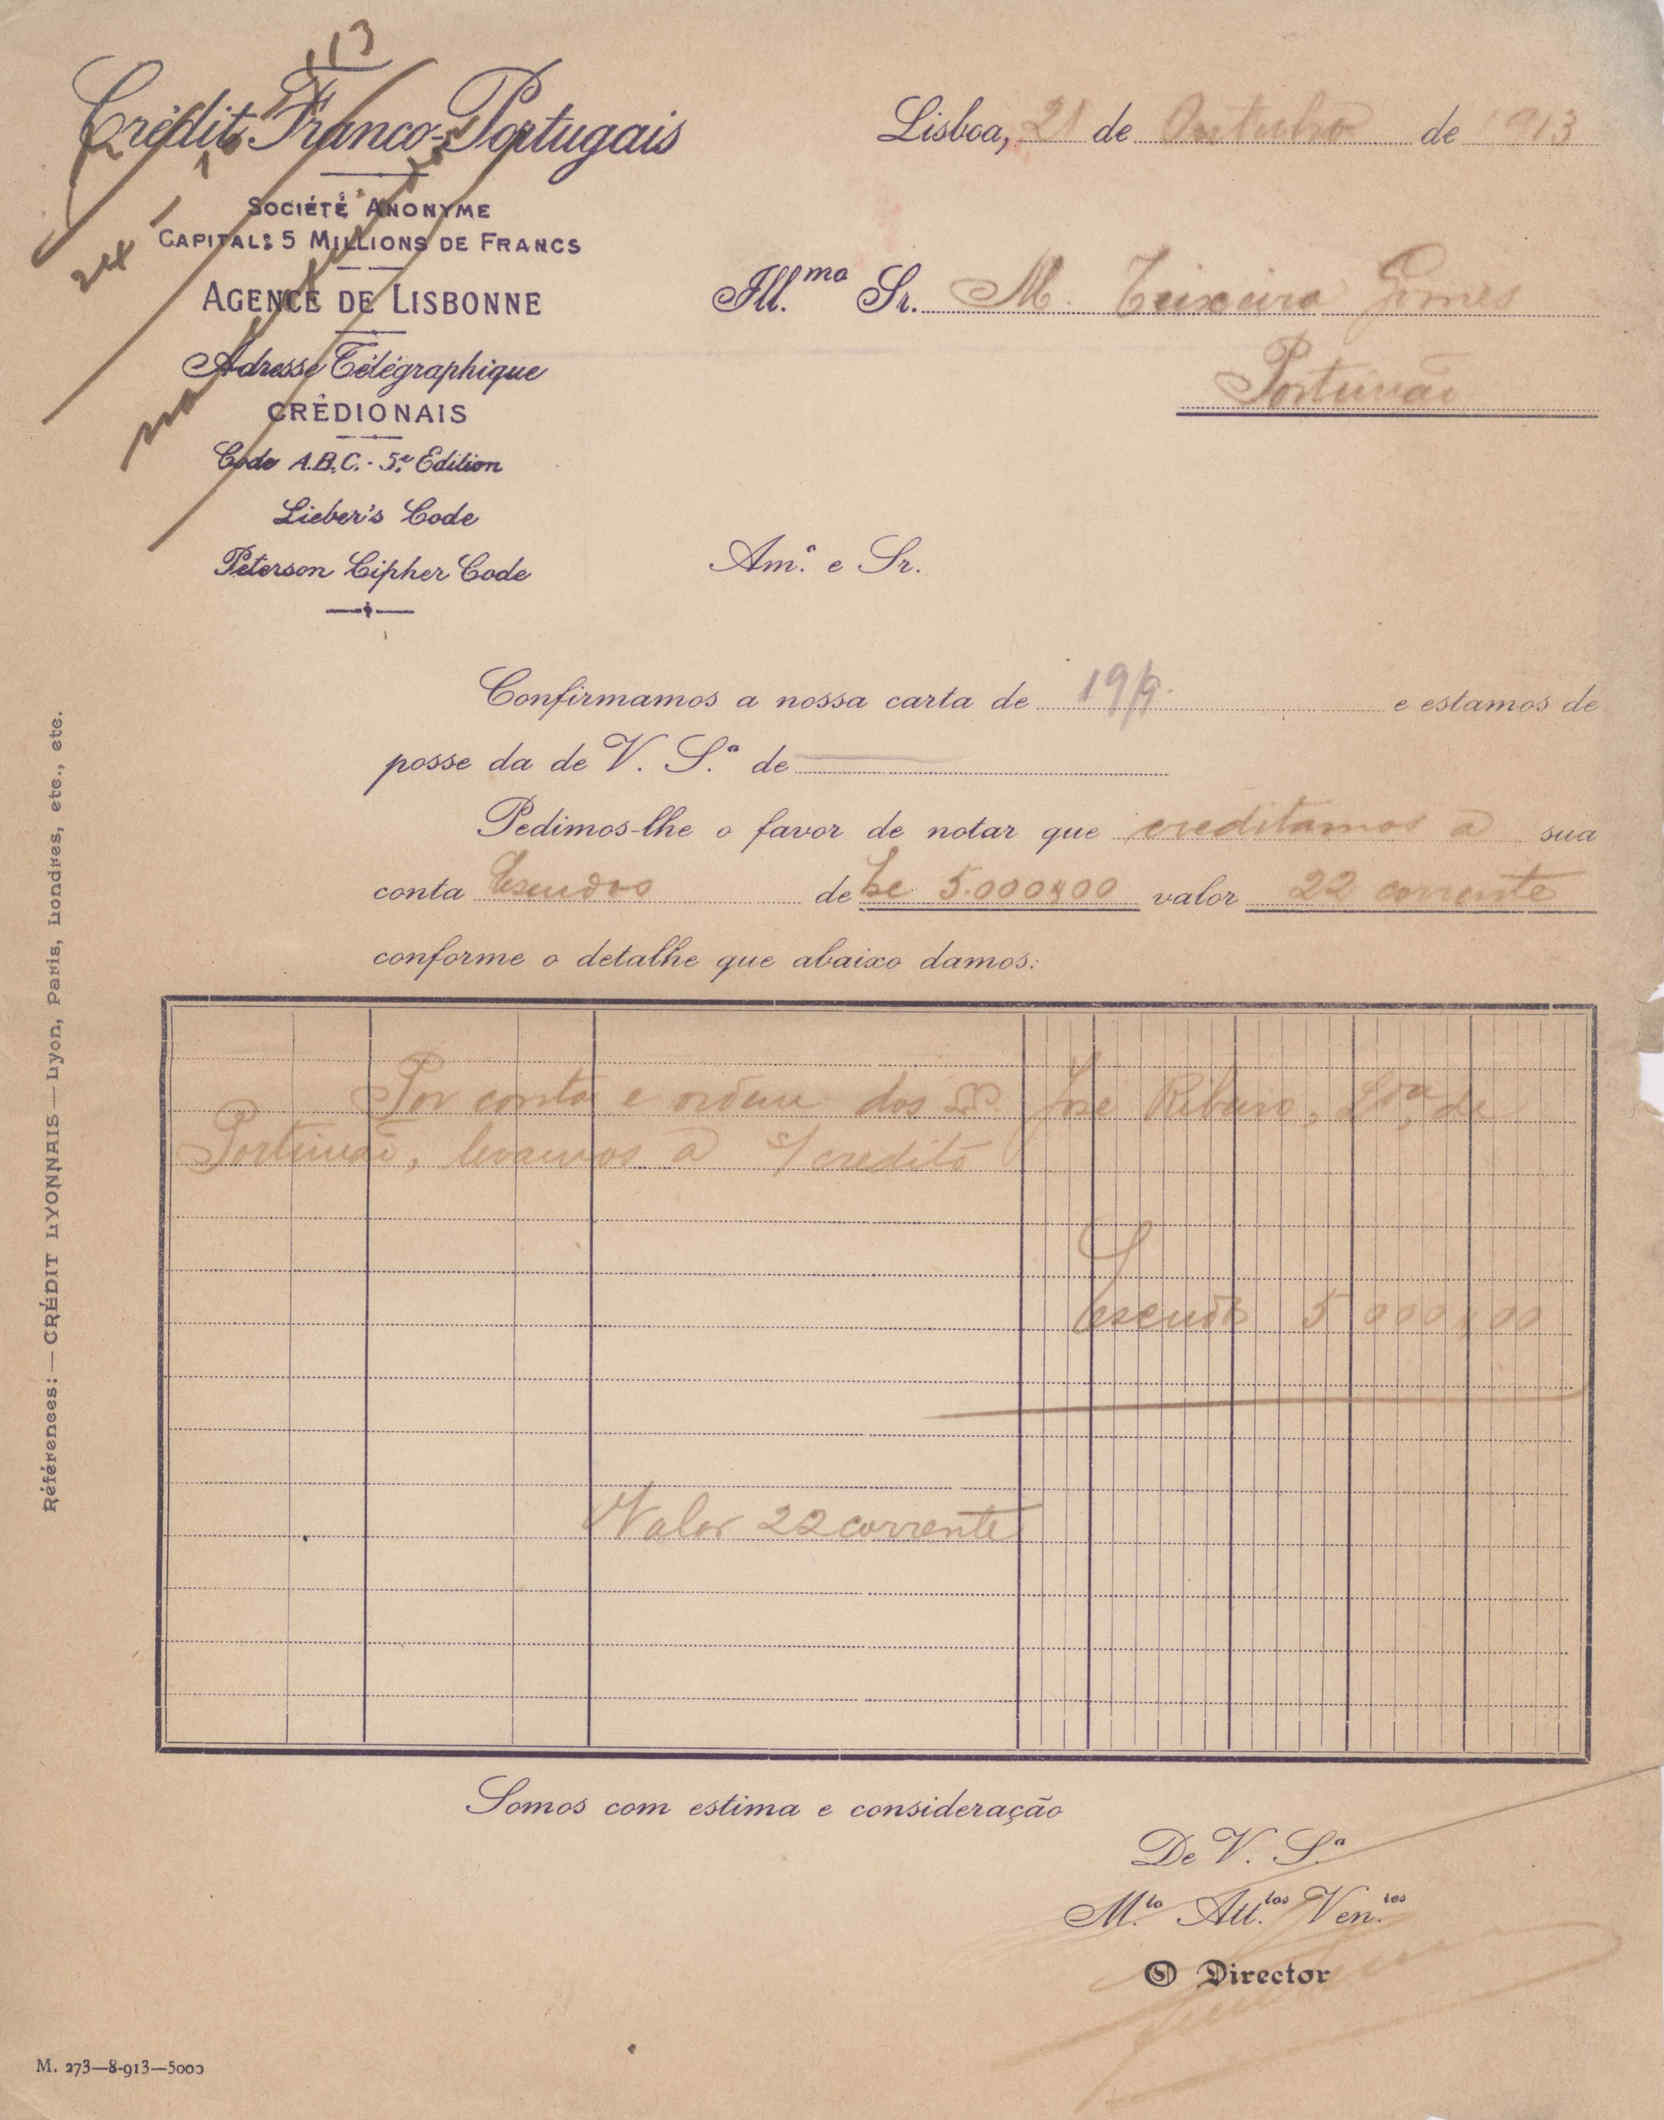 Crédit Franco-Portugais
Société Anonyme
Capital: 5 Millions de Francs
Agence de Lisbonne
Adresse Télégraphique
CRÉDIONAIS
Code A.B.C. - 5.e Edition
Lieber's Code
Peterson Cipher Code
Lisboa, 21 de Outubro de 1913
Ill.mo Sr. M. Teixeira Gomes
Portimão
Am.o e Sr.
Confirmamos a nossa carta de 19/9. e estamos de
posse da de V. S.a de
Pedimos-lhe o favor de notar que creditamos a sua
conta Escudos de Esc 5.000$00 valor 22 corrente
conforme o detalhe que abaixo damos:
Por conta e ordem dos Srs. José Ribeiro, Lda, de
Portimão, levamos a s/ credito
Escudos 5 000 $ 00
Valor 22 corrente
Somos com estima e consideração
De V. S.a
M.to Att.tos Ven.res
O Director
Références: — CRÉDIT LYONNAIS — Lyon, Paris, Londres, etc., etc.
M. 273—8-913—5000